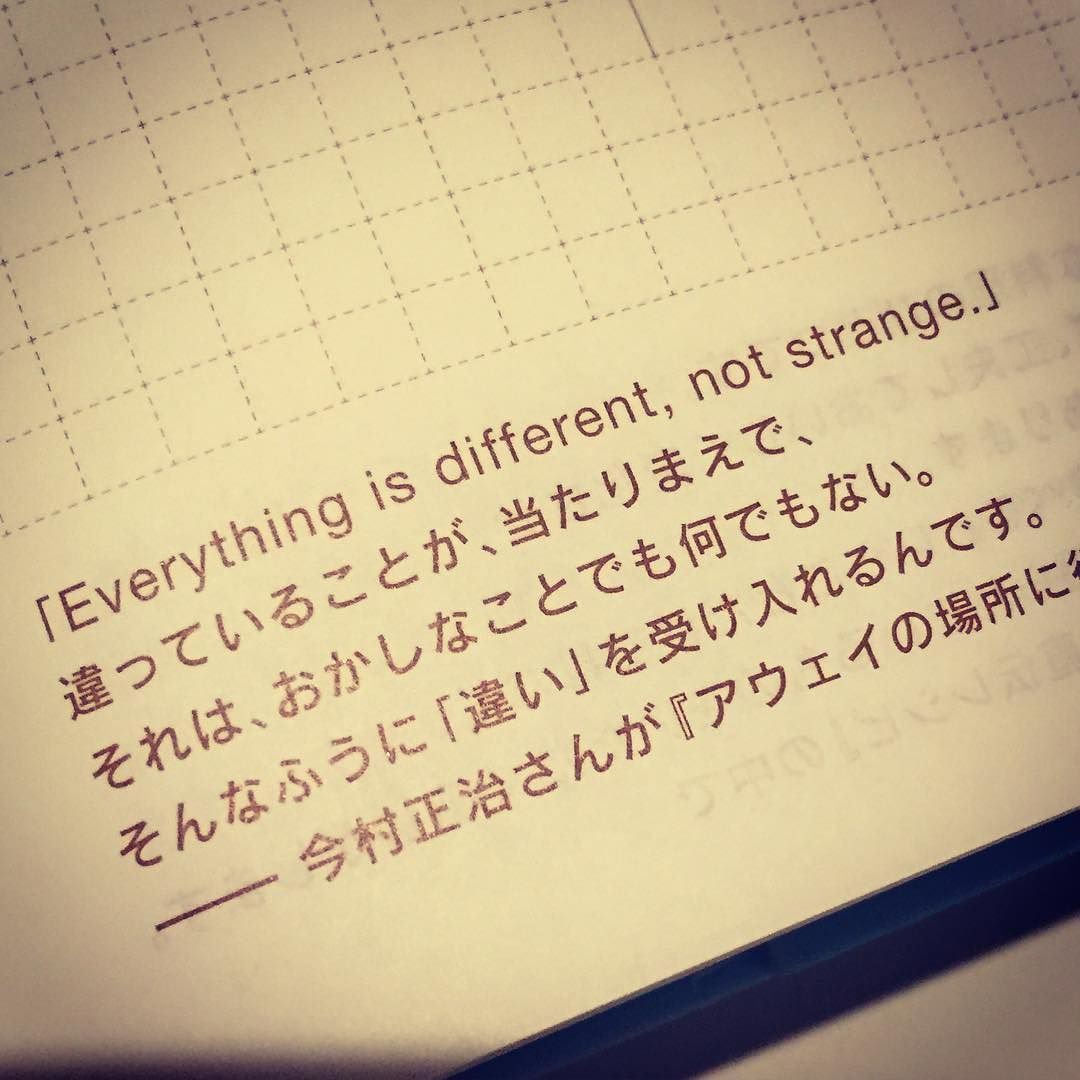 「Everything is different, not strange.」
違っていることが、当たりまえで、
それは、おかしなことでも何でもない。
そんなふうに「違い」を受け入れるんです。
―― 今村正治さんが『アウェイの場所に